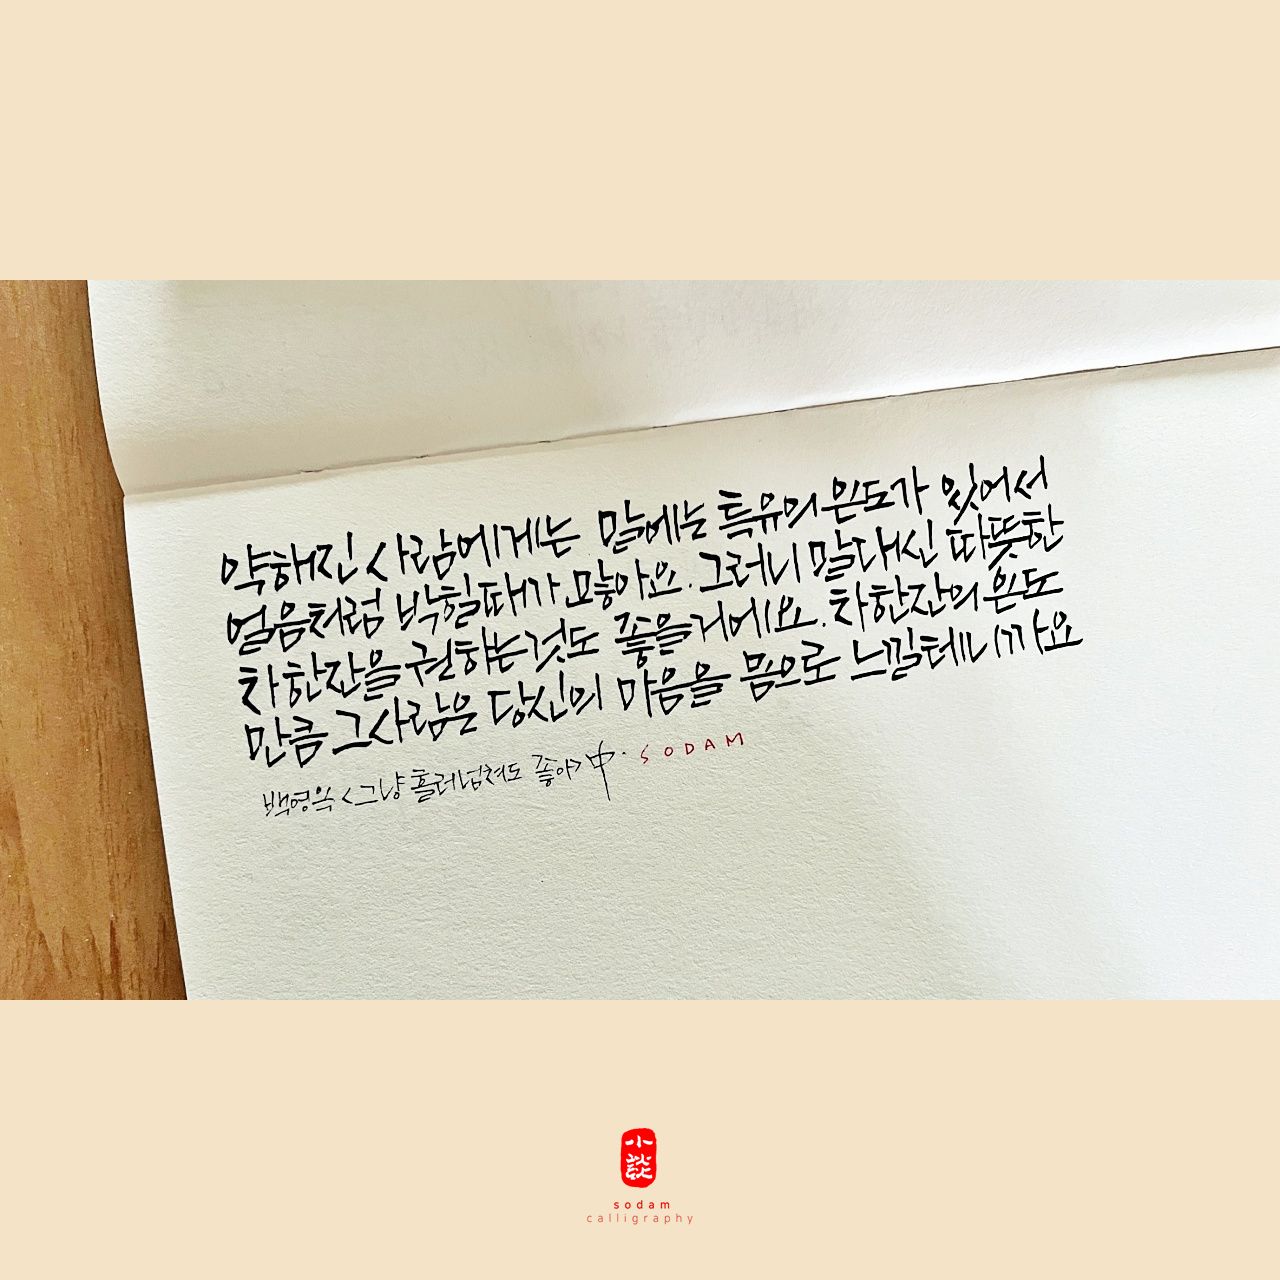 약해진 사람에게는 말에는 특유의 온도가 있어서
얼음처럼 박힐때가 많아요. 그러니 말대신 따뜻한
차한잔을 권하는것도 좋을거에요. 차한잔의 온도
만큼 그사람은 당신의 마음을 몸으로 느낄테니까요
백영옥 <그냥 흘러넘쳐도 좋아> 中. SODAM
小談
sodam
calligraphy